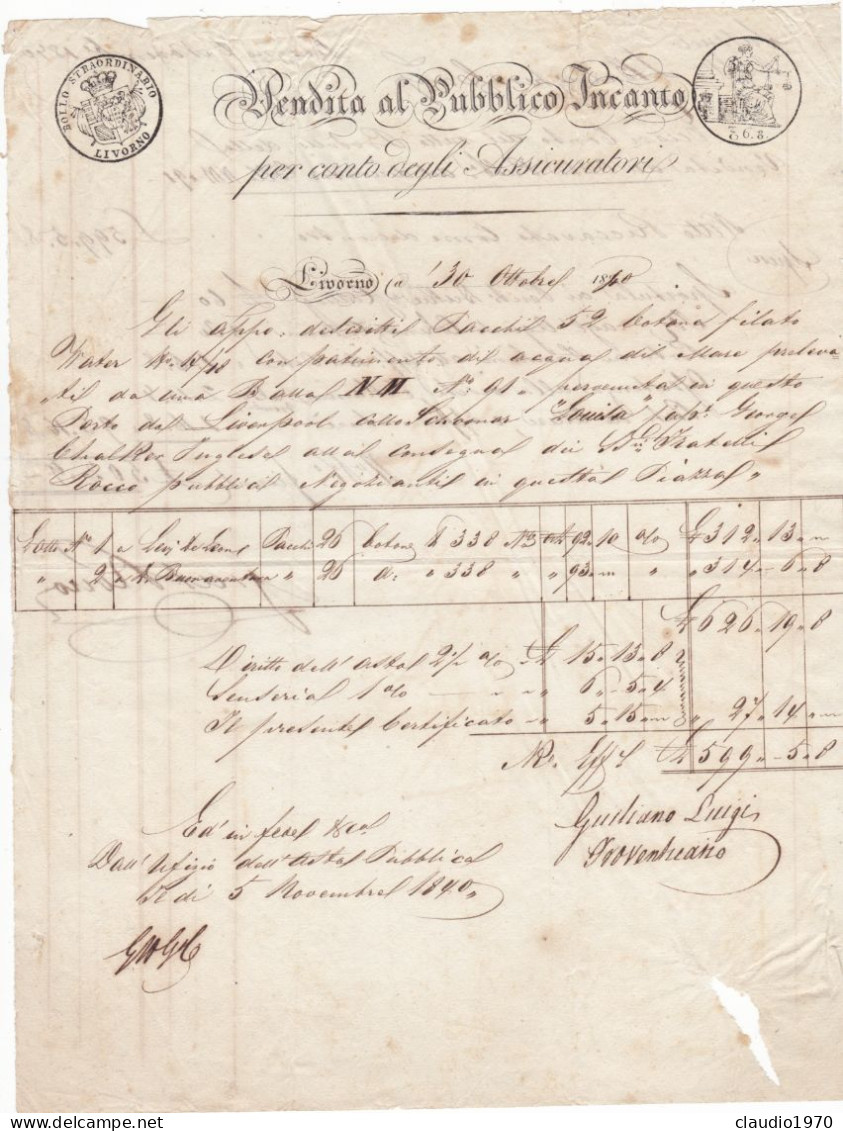 BOLLO STRAORDINARIO
LIVORNO
6. 8.
Vendita al Pubblico Incanto
per conto degli Assicuratori
Livorno a 30 Ottobre 1840
Gli appo: descritti Pacchi 52 Cotone filato
Water No. con patimento di acqua di Mare preleva
ti da una Balla NM No. 91. pervenuta in questo
Porto da Liverpool collo Schooner "Louisa" Cap: George
Chalker Inglese alla consegna dei Fratelli
Rocco pubblici Negozianti in questa Piazza
Lotto No. 1 a Pacchi 26 Cotone 338 92 10 % 312 13
" 2 a Buonaventura " 26 " 338 " " 93 " " 314 6 8
626 19 8
Diritto dell' asta 2½ % 15 13 8
Senseria 1 % 6 5 4
Il presente Certificato 5 15 27 14
599 5 8
Ed in fede
Dall' Ufizio dell' Asta Pubblica
Le dì 5 Novembre 1840
Giuliano Luigi
Proventuario
delcampe.net
claudio1970